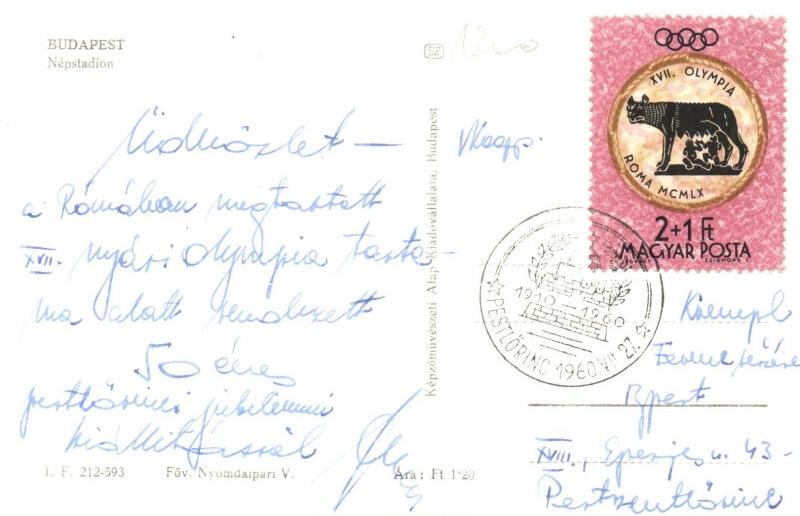 BUDAPEST
Népstadion
SZ
1200
Üdvözlet —
a Rómában megtartott
XVII. nyári olympia tarta-
ma alatt rendezett
50 éves
pestlőrinci jubileumi
kiállításról
I. F. 212-593 Föv. Nyomdaipari V. Ára: Ft 1·20
Képzőművészeti Alap Kiadóvállalata, Budapest
XVII. OLYMPIA
ROMA MCMLX
2+1 Ft
MAGYAR POSTA
1910 1960
PESTLŐRINC 1960 VII 27.
Krempl
Ferenc részére
Bpest
XVIII., Eperjes u. 43-
Pestszentlőrinc